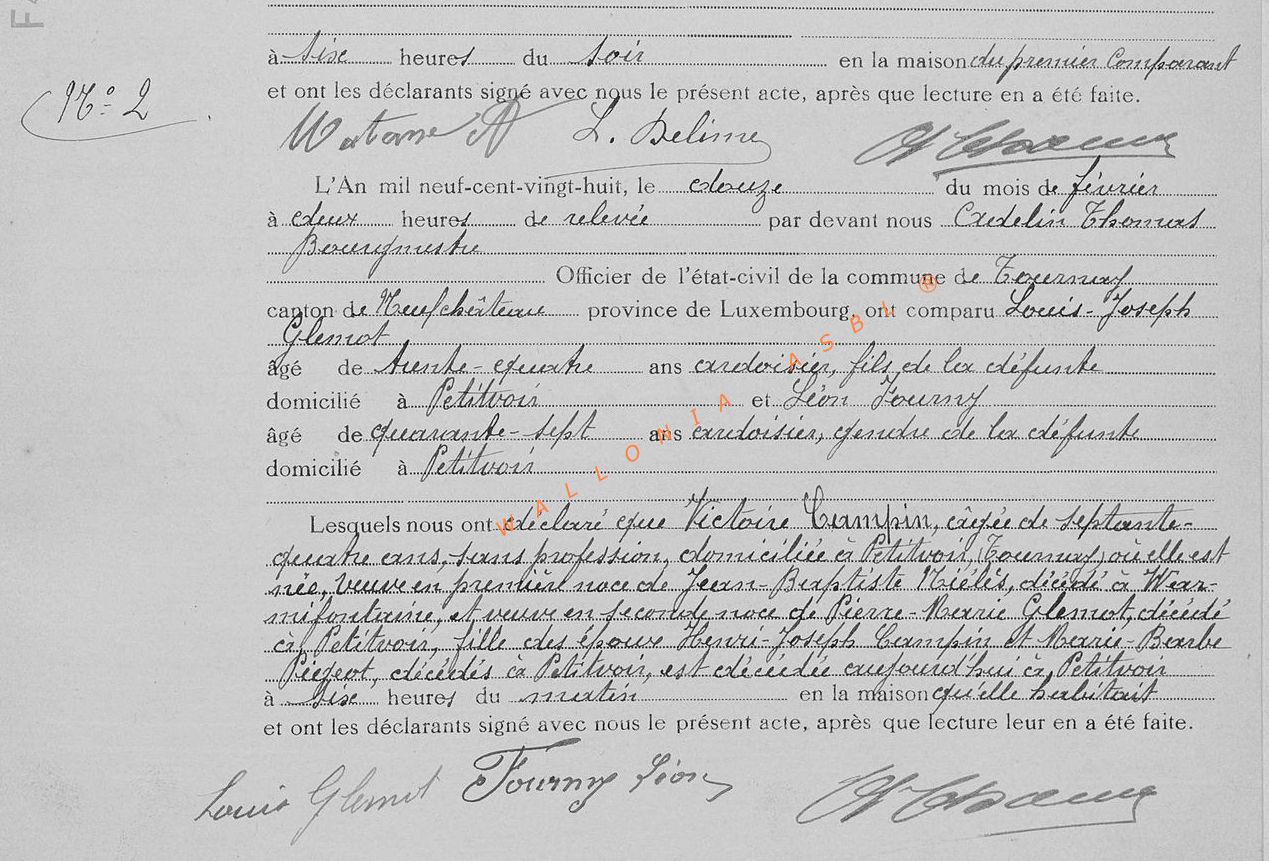 à six heures du soir en la maison du premier Comparant
et ont les déclarants signé avec nous le présent acte, après que lecture en a été faite.
N° 2
L. Delime
L'An mil neuf-cent-vingt-huit, le douze du mois de février
à deux heures de relevée par devant nous Cadelin Thomas
Bourgmestre
Officier de l'état-civil de la commune de Tournay
canton de Neufchâteau province de Luxembourg, ont comparu Louis-Joseph
Glemot
âgé de trente-quatre ans ardoisier, fils de la défunte
domicilié à Petitvoir et Léon Fourny
âgé de quarante-sept ans ardoisier, gendre de la défunte
domicilié à Petitvoir
WALLONIA ASBL ®
Lesquels nous ont déclaré que Victoire Campin, âgée de septante-
quatre ans, sans profession, domiciliée à Petitvoir, (Tournay) où elle est
née, veuve en premièr noce de Jean-Baptiste Niélès, décédé à War-
mifontaine, et veuve en seconde noce de Pierre-Marie Glemot, décédé
à Petitvoir, fille des époux Henri-Joseph Campin et Marie-Barbe
Piégeot, décédés à Petitvoir, est décédée aujourd'hui à Petitvoir
à six heures du matin en la maison qu'elle habitait
et ont les déclarants signé avec nous le présent acte, après que lecture leur en a été faite.
Louis Glemot Fourny Léon